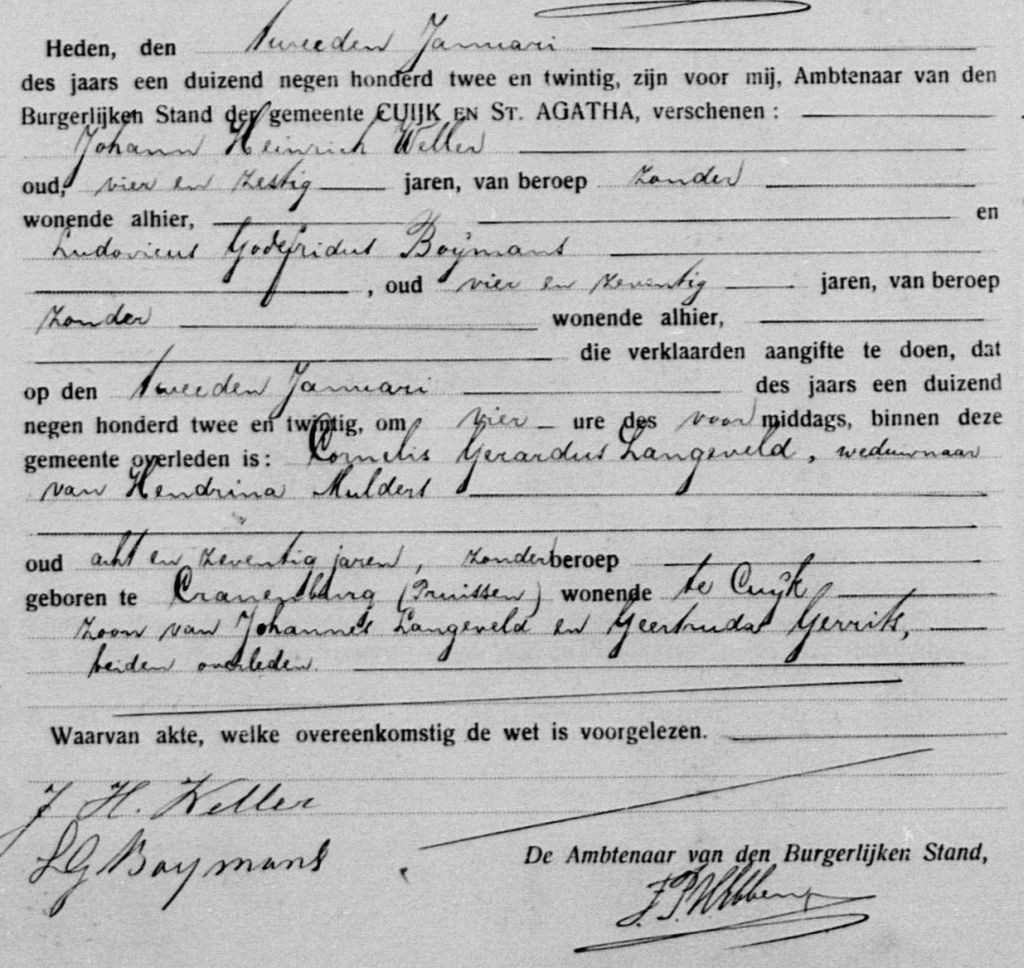 Heden, den tweeden Januari
des jaars een duizend negen honderd twee en twintig, zijn voor mij, Ambtenaar van den
Burgerlijken Stand der gemeente CUIJK EN ST. AGATHA, verschenen :
Johann Heinrich Weller
oud, vier en zestig jaren, van beroep zonder
wonende alhier, en
Ludovicus Godefridus Boÿmans
, oud vier en zeventig jaren, van beroep
zonder wonende alhier,
die verklaarden aangifte te doen, dat
op den tweeden Januari des jaars een duizend
negen honderd twee en twintig, om vier ure des voormiddags, binnen deze
gemeente overleden is: Cornelis Gerardus Langeveld, weduwnaar
van Hendrina Mulders
oud acht en zeventig jaren, zonder beroep
geboren te Cranenburg (Pruissen) wonende te Cuijk
zoon van Johannes Langeveld en Geertruda Gerrits,
beiden overleden
Waarvan akte, welke overeenkomstig de wet is voorgelezen.
J H. Weller
LG Boymans
De Ambtenaar van den Burgerlijken Stand,